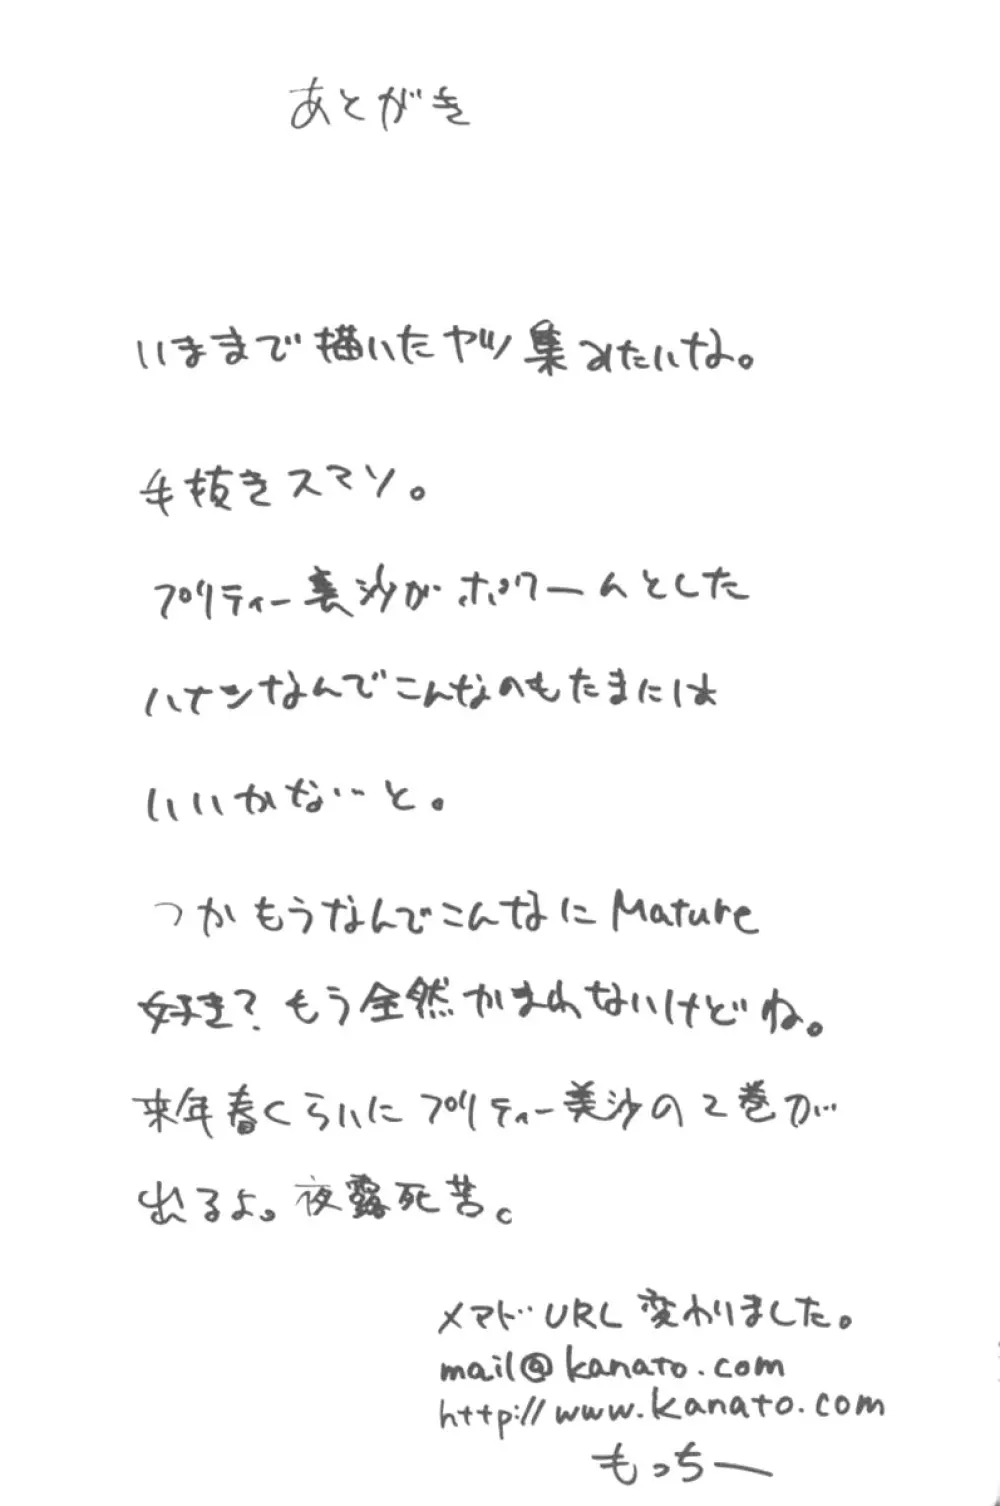 あとがき
いままで描いたヤツ集みたいな。
手抜きスマソ。
プリティー美沙がポワーんとした
ハナシなんでこんなのもたまには
いいかな…と。
つかもうなんでこんなにMature
好き？もう全然かまわないけどね。
来年春くらいにプリティー美沙の2巻が
出るよ。夜露死苦。
メアドURL変わりました。
mail@kanato.com
http://www.kanato.com
もっちー